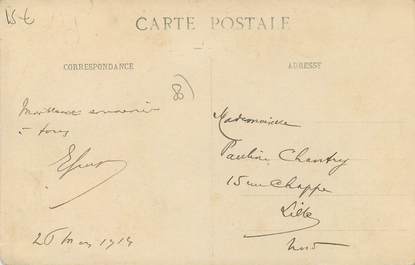 CARTE POSTALE
CORRESPONDANCE
ADRESSE
Meilleur souvenir
à tous
Mademoiselle
Pauline Chantry
15 rue Chappe
Lille
Nord